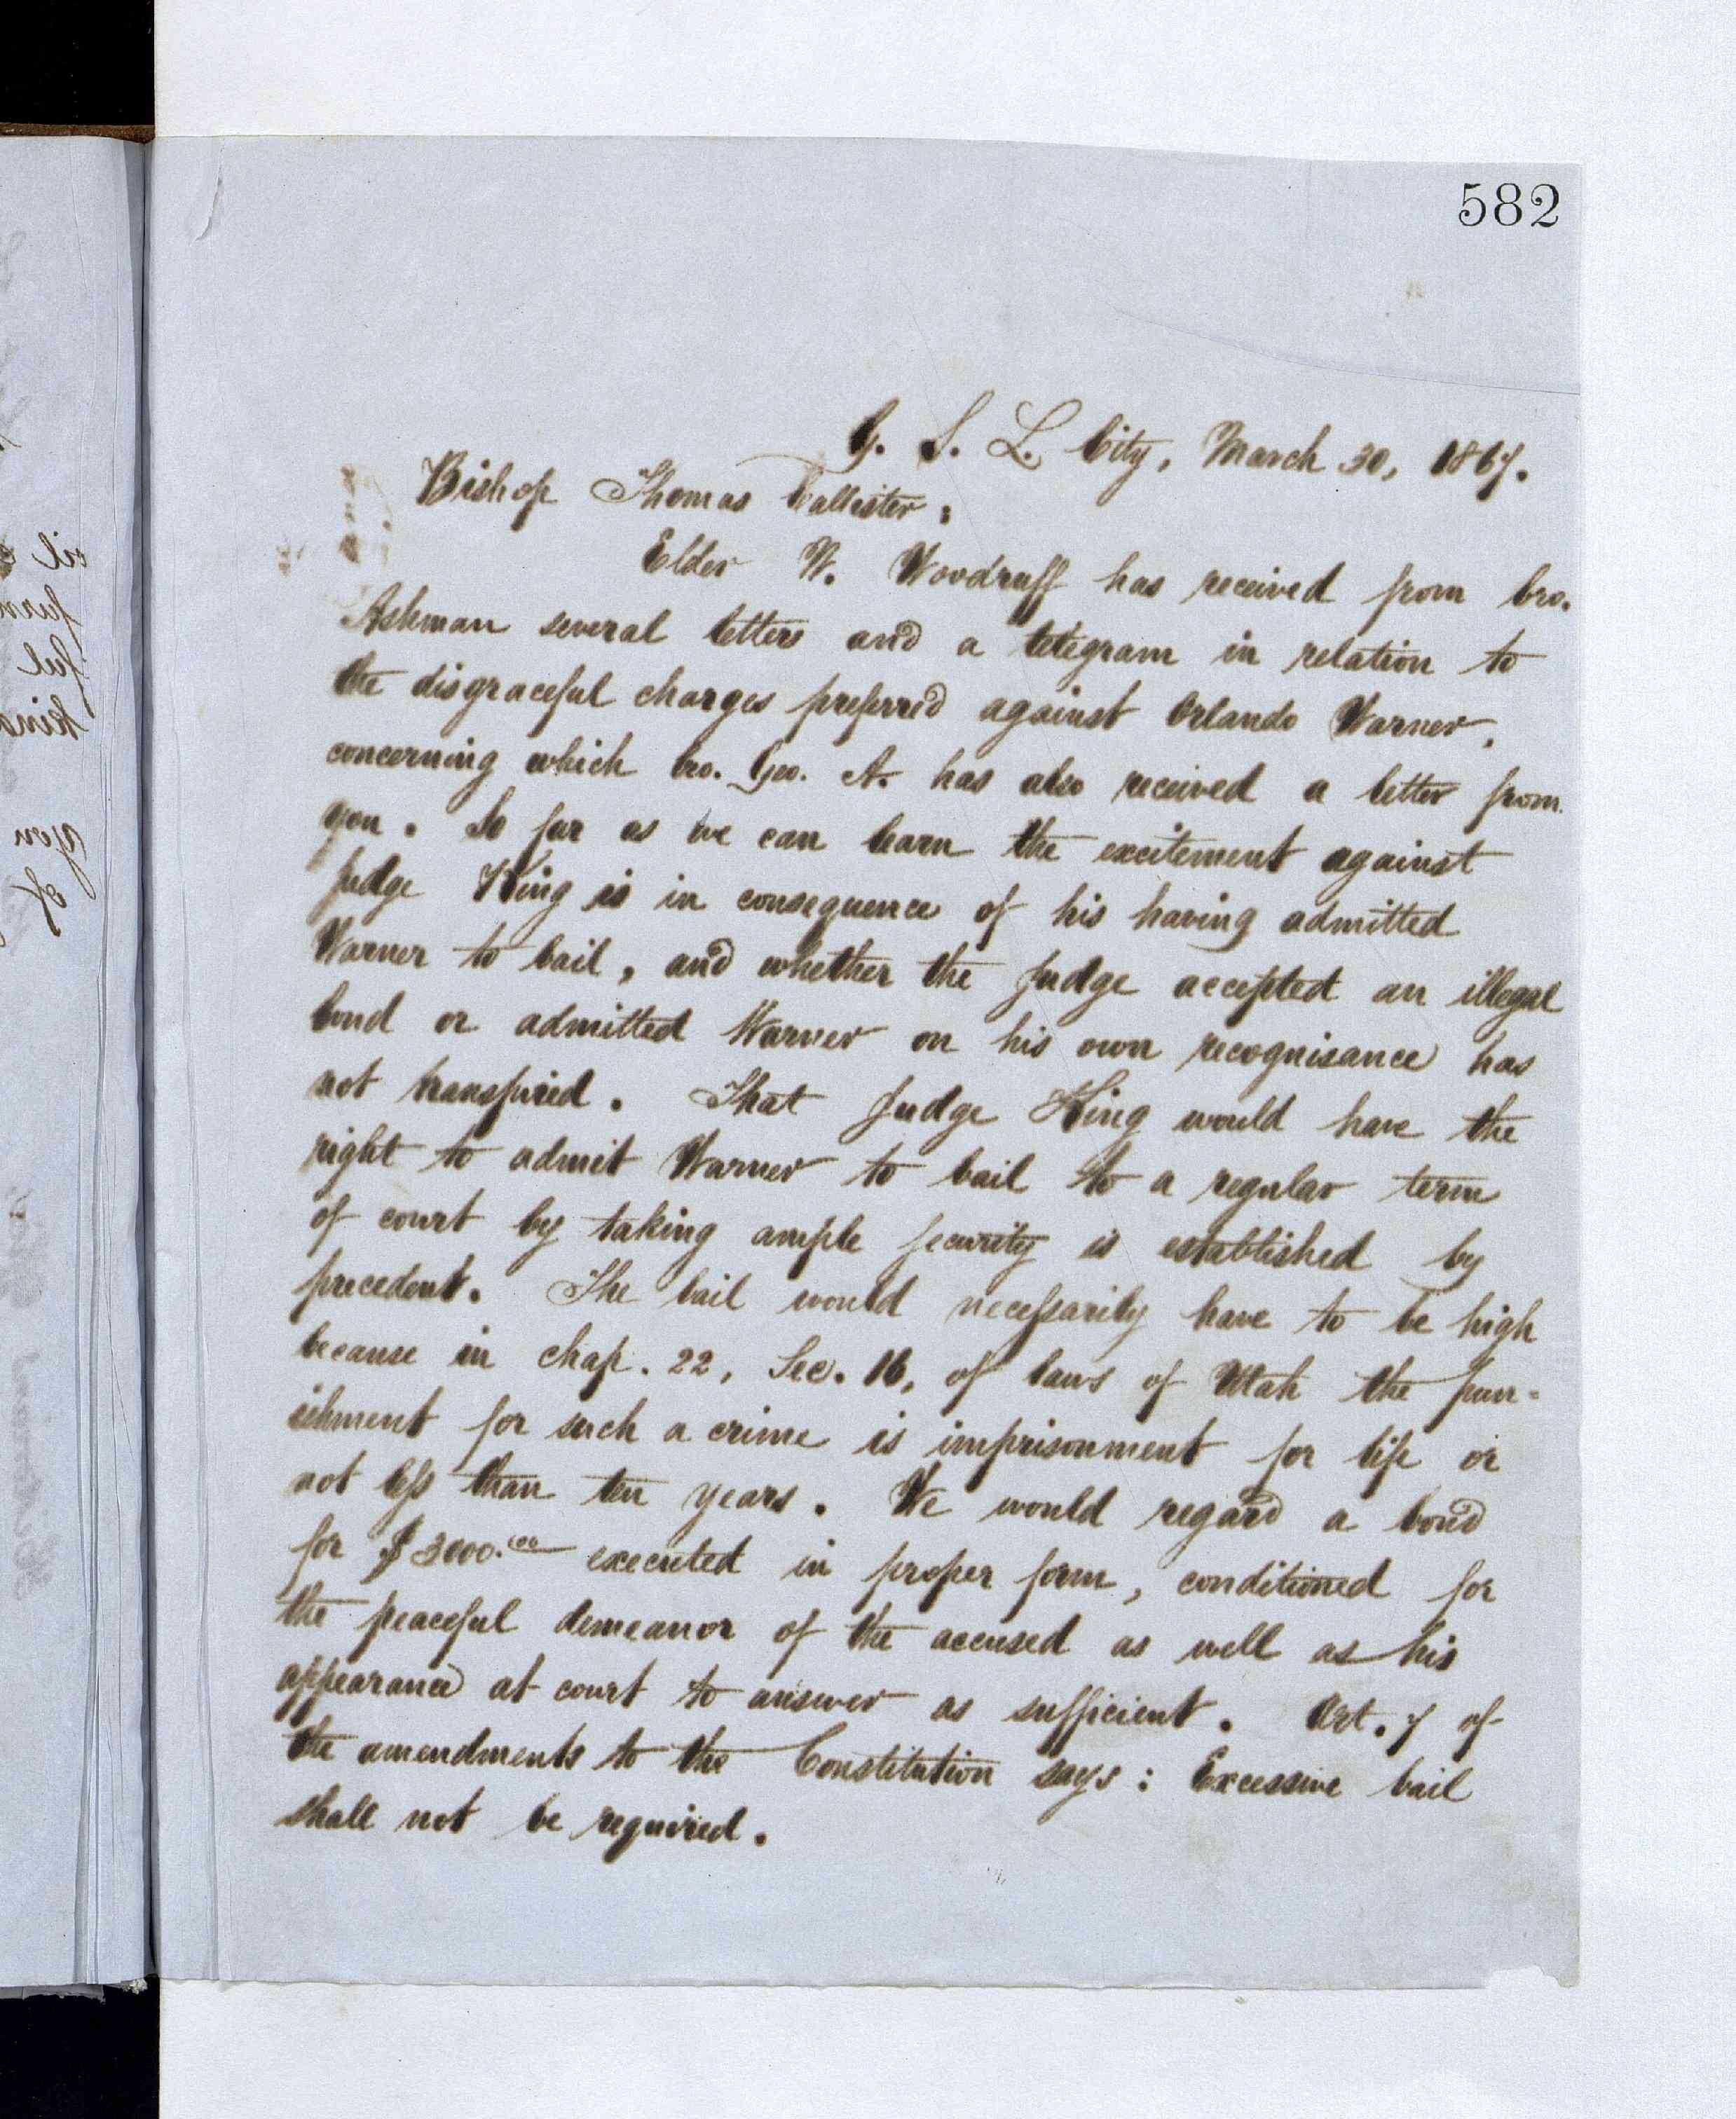 582
G. S. L. City, March 30, 1867.
Bishop Thomas Callister;
Elder W. Woodruff has received from bro.
Ashman several letters and a telegram in relation to
the disgraceful charges preferred against Orlando Warner,
concerning which bro. Geo. A. has also received a letter from
you. So far as we can learn the excitement against
Judge King is in consequence of his having admitted
Warner to bail, and whether the Judge accepted an illegal
bond or admitted Warner on his own recognisance has
not transpired. That Judge King would have the
right to admit Warner to bail to a regular term
of court by taking ample security is established by
precedent. The bail would necessarily have to be high
because in chap. 22, Sec. 16, of laws of Utah the pun-
ishment for such a crime is imprisonment for life or
not less than ten years. We would regard a bond
for $3000.00 executed in proper form, conditioned for
the peaceful demeanor of the accused as well as his
appearance at court to answer as sufficient. Art. 7 of
the amendments to the Constitution says: Excessive bail
shall not be required.